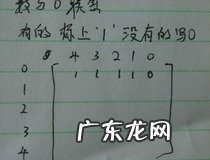 有的 标上‘1’没有的写0
4 3 2 1 0
0 1 1 1 1 0
1
2
3
4
广东龙网